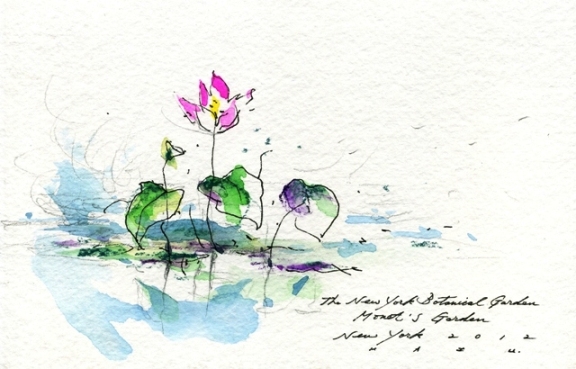 The New York Botanical Garden
Monet's Garden
New York 2012